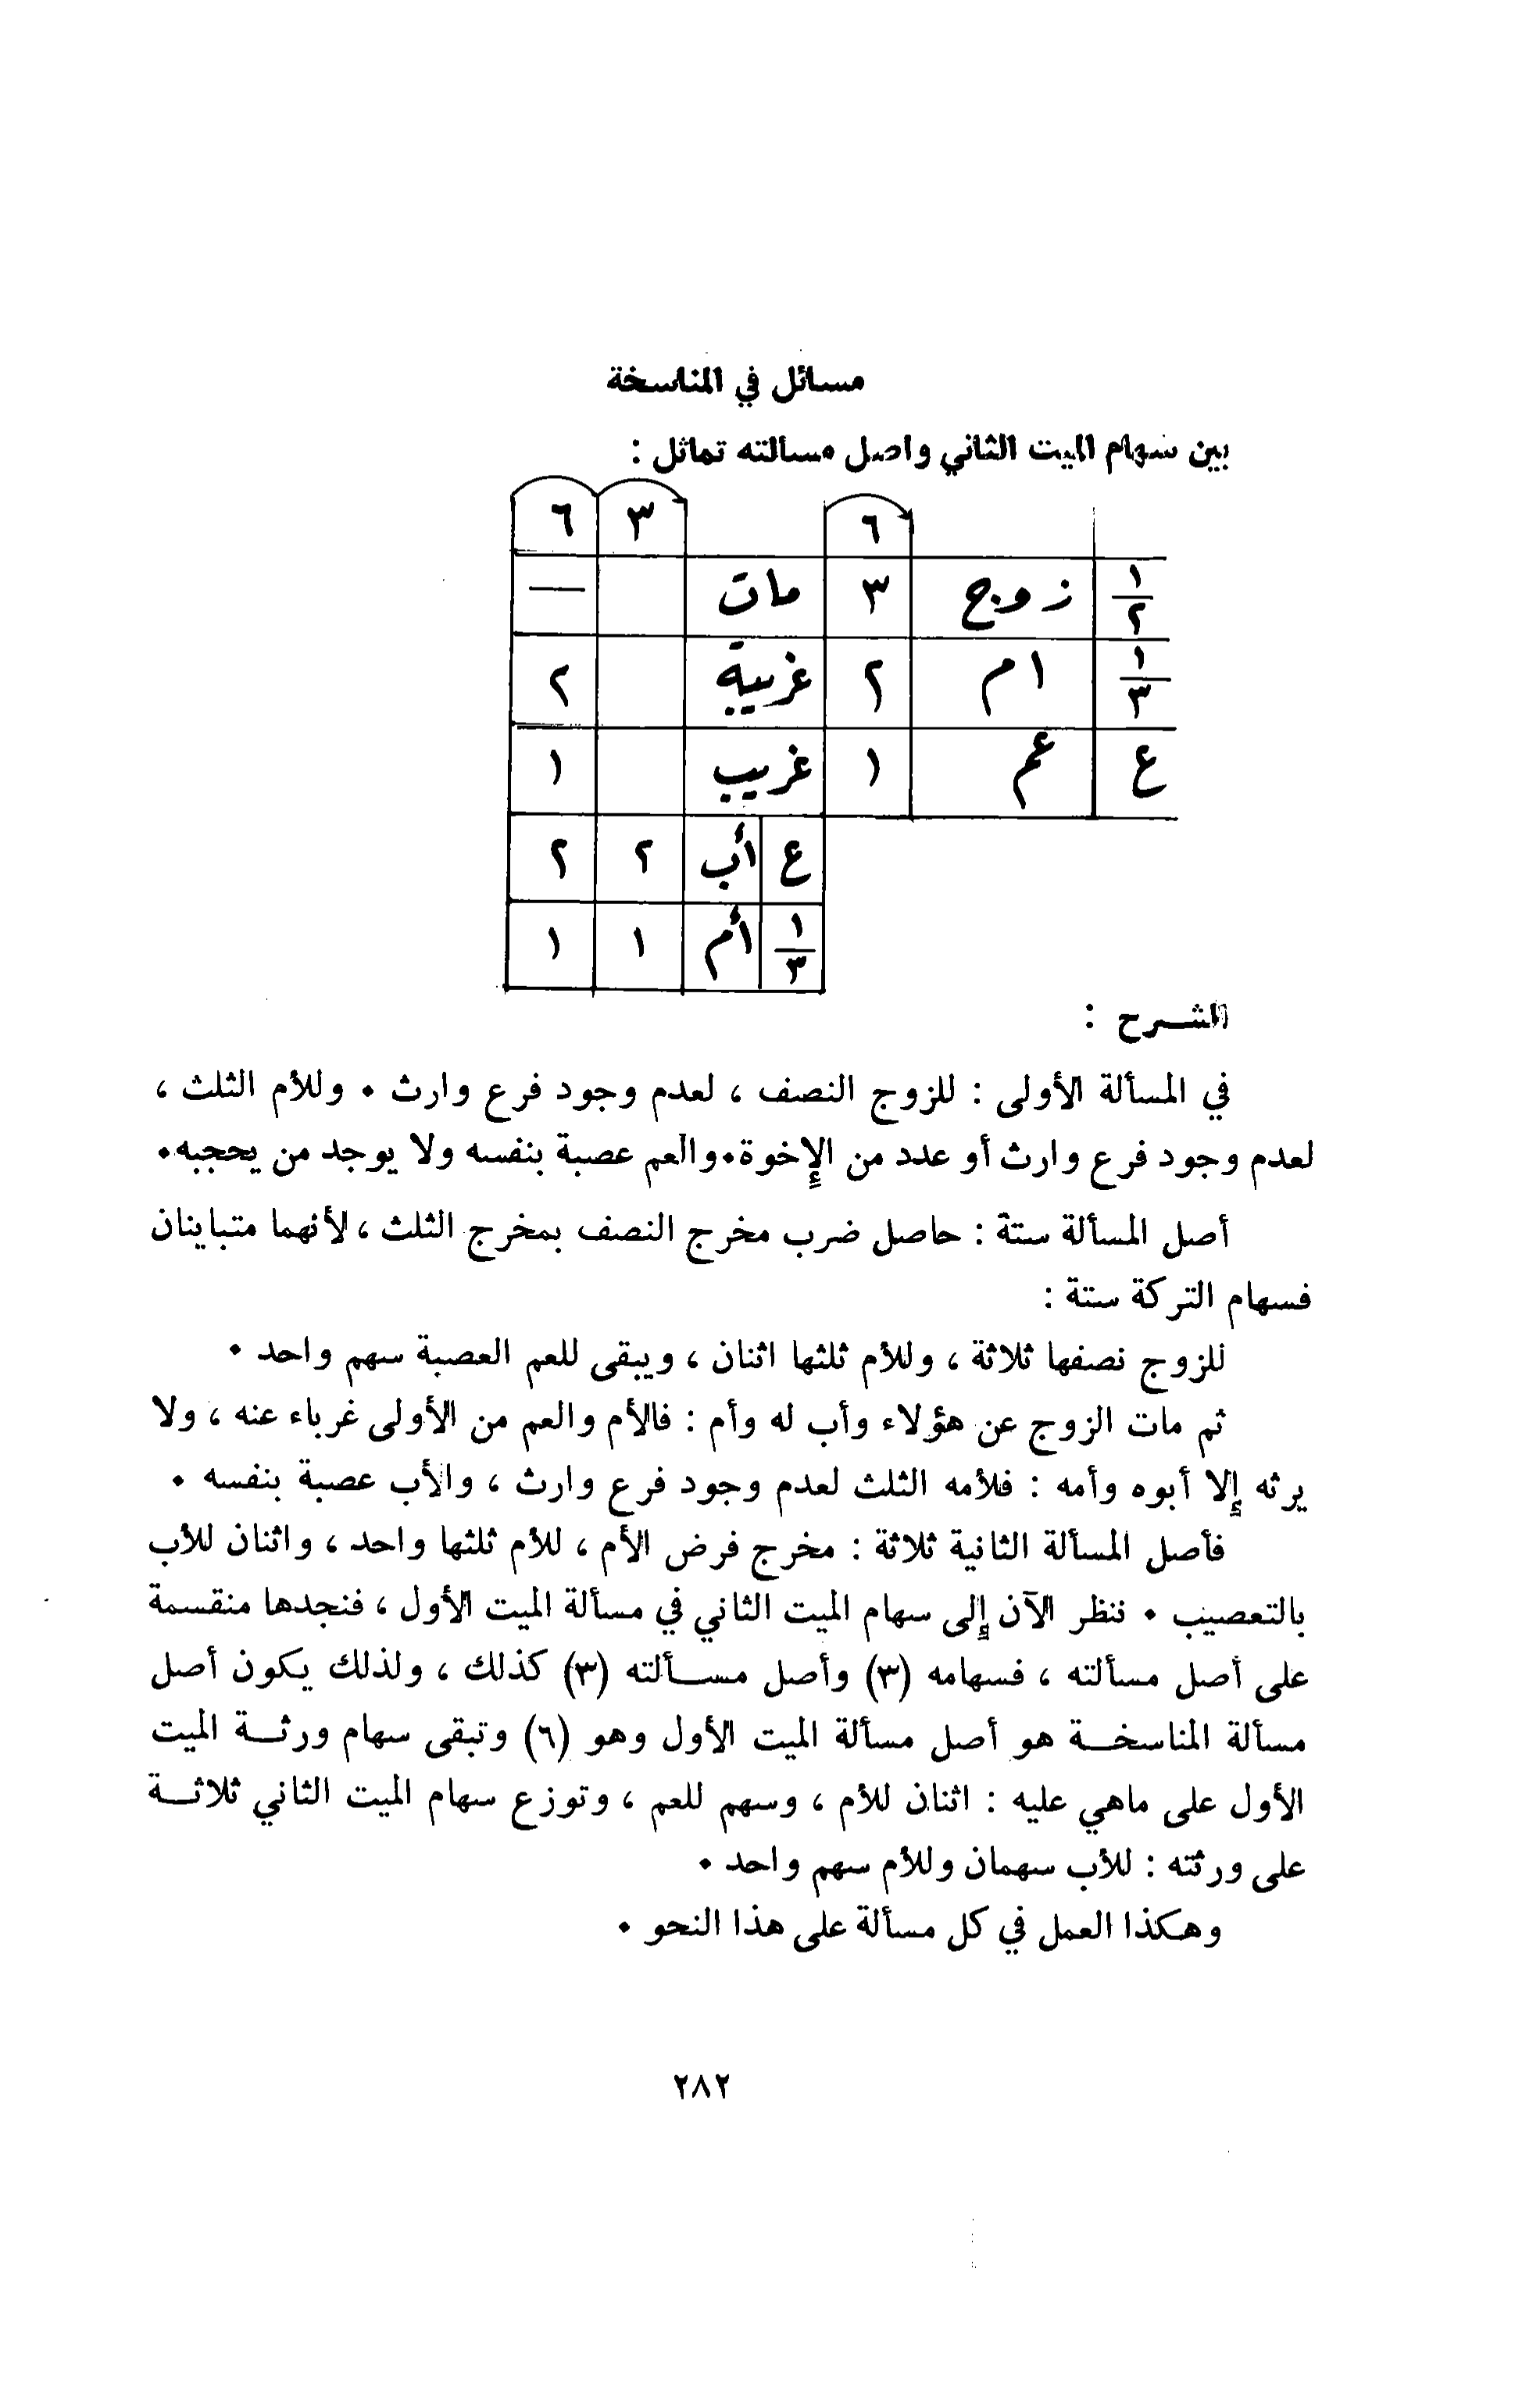 مسائل في المناسخة
بين سهام الميت الثاني واصل مسالته تماثل :
٦ ٣ ٦
١/٢ زوج ٣ مات —
١/٣ ام ٢ غريبة ٢
ع عم ١ غريب ١
ع أب ٢ ٢
١/٣ أم ١ ١
الشرح :
في المسألة الأولى : للزوج النصف ، لعدم وجود فرع وارث . وللأم الثلث ،
لعدم وجود فرع وارث أو عدد من الإخوة.والعم عصبة بنفسه ولا يوجد من يحجبه.
أصل المسألة ستة : حاصل ضرب مخرج النصف بمخرج الثلث ، لأنهما متباينان
فسهام التركة ستة :
للزوج نصفها ثلاثة ، وللأم ثلثها اثنان ، ويبقى للعم العصبة سهم واحد .
ثم مات الزوج عن هؤلاء وأب له وأم : فالأم والعم من الأولى غرباء عنه ، ولا
يرثه إلا أبوه وأمه : فلأمه الثلث لعدم وجود فرع وارث ، والأب عصبة بنفسه .
فأصل المسألة الثانية ثلاثة : مخرج فرض الأم ، للأم ثلثها واحد ، واثنان للأب
بالتعصيب . ننظر الآن إلى سهام الميت الثاني في مسألة الميت الأول ، فنجدها منقسمة
على أصل مسألته ، فسهامه (٣) وأصل مســألته (٣) كذلك ، ولذلك يكون أصل
مسألة المناسخــة هو أصل مسألة الميت الأول وهو (٦) وتبقى سهام ورثــة الميت
الأول على ماهي عليه : اثنان للأم ، وسهم للعم ، وتوزع سهام الميت الثاني ثلاثــة
على ورثته : للأب سهمان وللأم سهم واحد .
وهكذا العمل في كل مسألة على هذا النحو .
٢٨٢